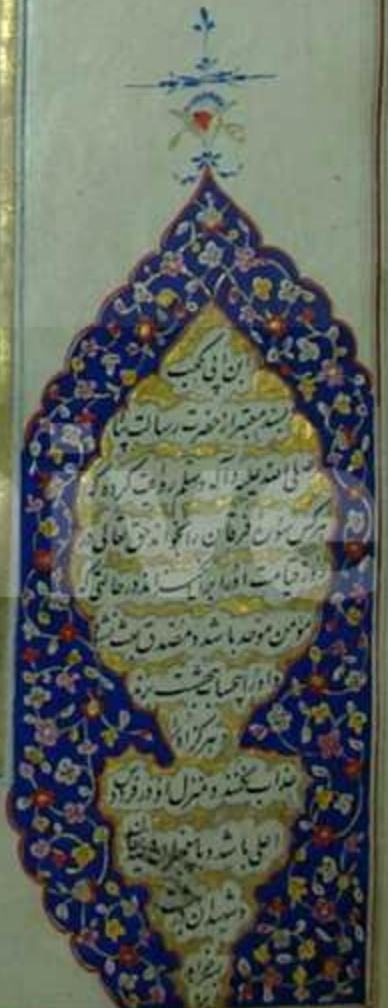 ابن ابی کعب
بسند معتبر از حضرت رسالت پنا
صلی الله علیه و آله وسلم روایت کرده که
هر کس سوره فرقان را بخواند حق تعالی در
روز قیامت او را برانگیزاند در حالتی که
مؤمن موحد باشد و مصدق بعث و نشر
و او را بیحساب ببهشت برند
و هرگز او را
عذاب نکنند و منزل او در فردوس
اعلی باشد و با پیغمبران
و شهیدان